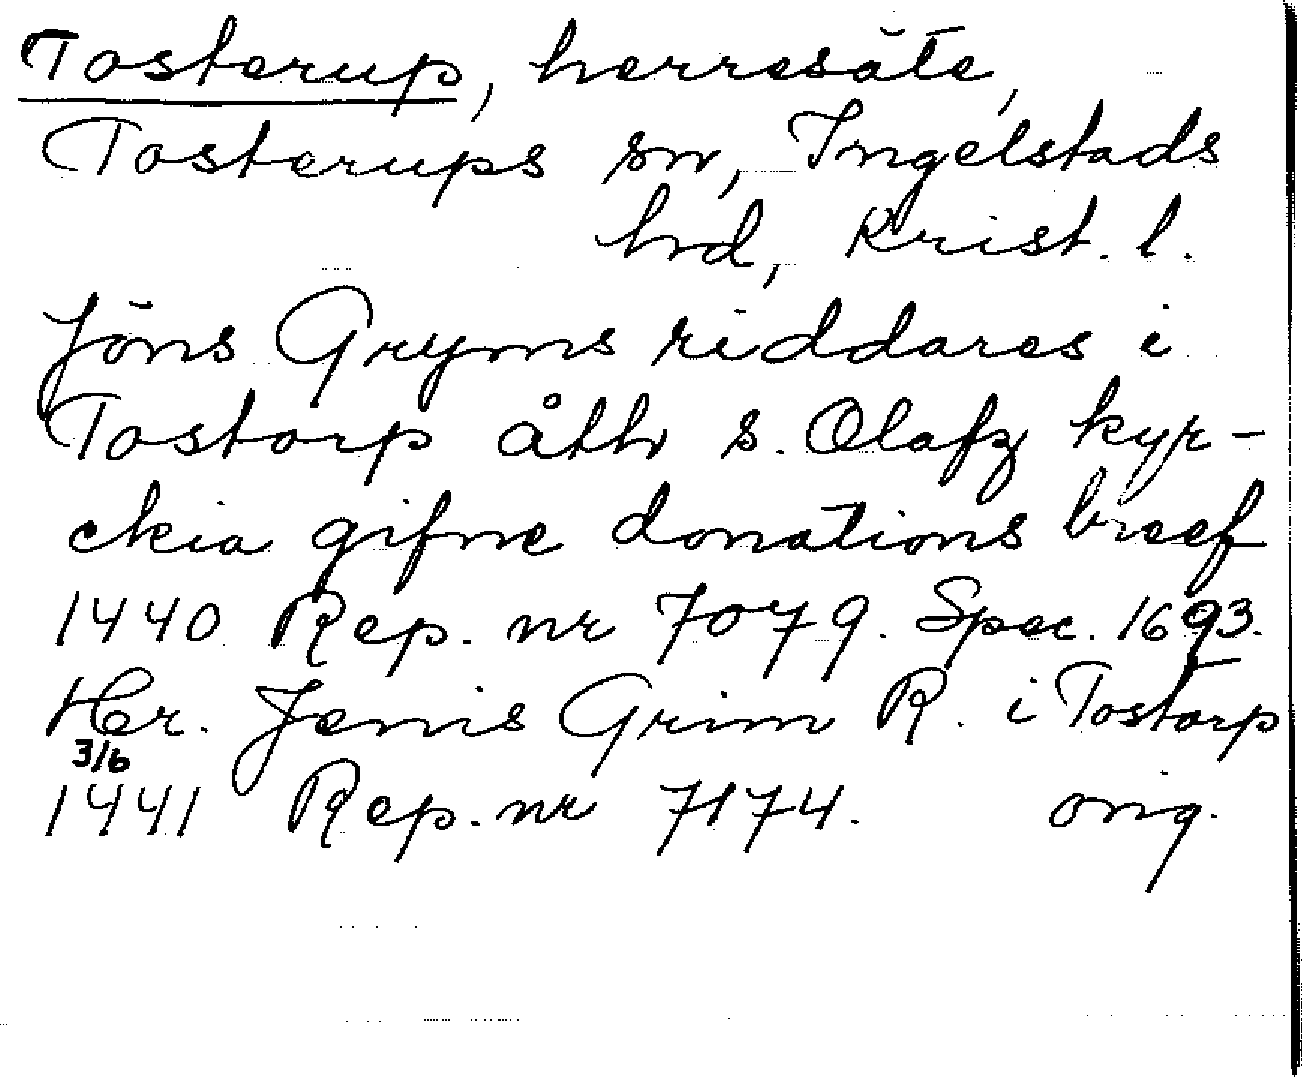 Tosterup, herresäte,
Tosterups sn, Ingelstads
hrd, Krist. l.
Jöns Gryms riddares i
Tostorp åth S. Olafz kyr-
ckia gifne donations breef
1440 Rep. nr 7079. Spec. 1693.
Her. Jenis Grim R. i Tostorp
3/6
1441 Rep. nr 7174. orig.